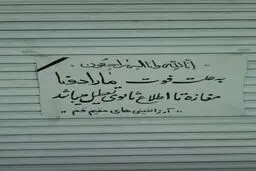 انا لله و انا الیه راجعون
به علت فوت مارادونا
مغازه تا اطلاع ثانوی تعطیل میباشد
،، آرژانتینی های مقیم قم ،،